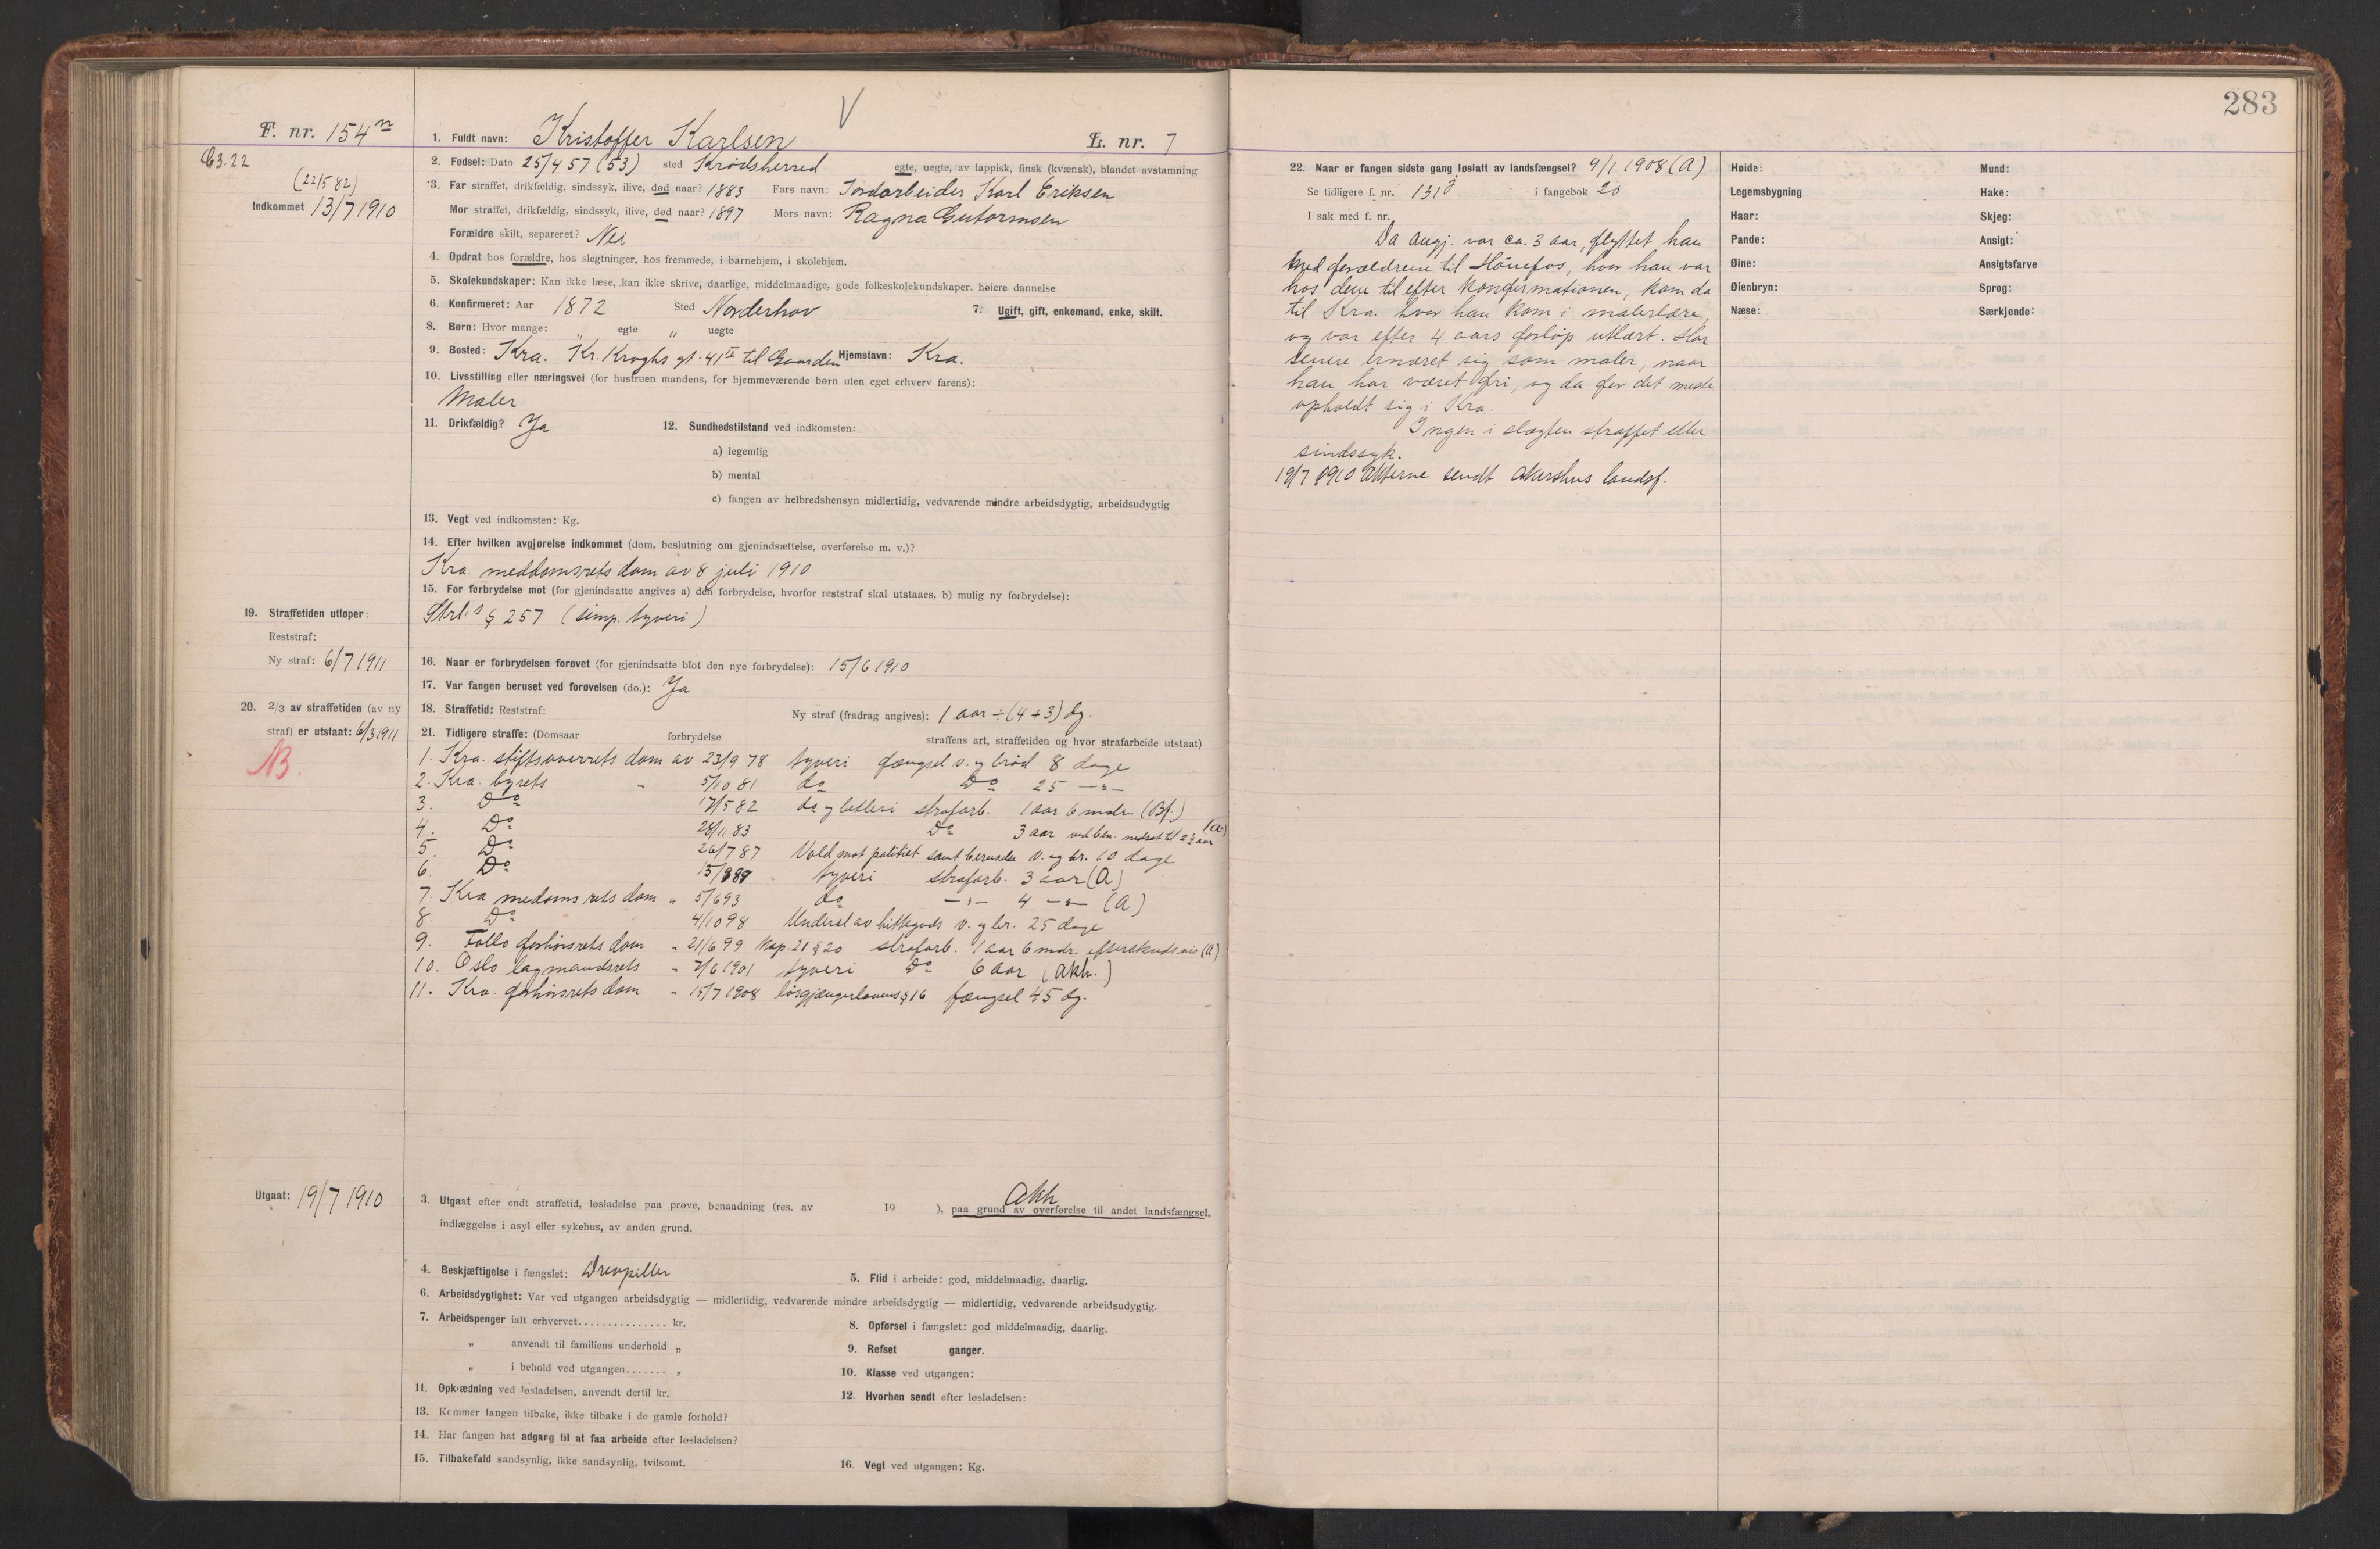 283
F. nr. 154 n
C3.22
(22/5 82)
Indkommet 13/7 1910
L. nr. 7
1. Fuldt navn: Kristoffer Karlsen
2. Fødsel: Dato 25/4 57 (53) sted Krødsherred egte, uegte, av lappisk, finsk (kvænsk), blandet avstamning
3. Far straffet, drikfældig, sindssyk, ilive, død naar? 1883 Fars navn: Jordarbeider Karl Eriksen
Mor straffet, drikfældig, sindssyk, ilive, død naar? 1897 Mors navn: Ragna Gutormsen
Forældre skilt, separeret? Nei
4. Opdrat hos forældre, hos slegtninger, hos fremmede, i barnehjem, i skolehjem.
5. Skolekundskaper: Kan ikke læse, kan ikke skrive, daarlige, middelmaadige, gode folkeskolekundskaper. høiere dannelse
6. Konfirmeret: Aar 1872 Sted Norderhov 7. Ugift, gift, enkemand, enke, skilt.
8. Børn: Hvor mange: " egte " uegte
9. Bosted: Kra. Kr. Kroghs gt. 41 II til Gaarden Hjemstavn: Kra.
10. Livsstilling eller næringsvei (for hustruen mandens, for hjemmeværende børn uten eget erhverv farens):
Maler
11. Drikfældig? Ja 12. Sundhedstilstand ved indkomsten:
a) legemlig
b) mental
c) fangen av helbredshensyn midlertidig, vedvarende mindre arbeidsdygtig, arbeidsudygtig
13. Vegt ved indkomsten: Kg.
14. Efter hvilken avgjørelse indkommet (dom, beslutning om gjenindsættelse, overførelse m. v.)?
Kra. meddomsrets dom av 8 juli 1910
15. For forbrydelse mot (for gjenindsatte angives a) den forbrydelse, hvorfor reststraf skal utstaaes, b) mulig ny forbrydelse):
Strl's § 257 (simp. tyveri)
19. Straffetiden utløper:
Reststraf:
Ny straf: 6/7 1911
16. Naar er forbrydelsen forøvet (for gjenindsatte blot den nye forbrydelse): 15/6 1910
17. Var fangen beruset ved forøvelsen (do.): Ja
20. 2/3 av straffetiden (av ny straf) er utstaat: 6/3 1911
NB.
18. Straffetid: Reststraf: Ny straf (fradrag angives): 1 aar ÷ (4+3) dg.
21. Tidligere straffe: (Domsaar forbrydelse straffens art, straffetiden og hvor strafarbeide utstaat)
1. Kra. stiftsoverrets dom av 23/9 78 tyveri fængsel v. og brød 8 dage
2. Kra. byrets " 5/10 81 do Do 25 -"-
3. Do 17/5 82 do og betleri strafarb. 1 aar 6 mdr. (Bf.)
4. Do 28/11 83 Do 3 aar ved ben. nedsat til 2 1/2 aar (a)
5. Do 26/7 87 Vold mot politiet samt beruselse v. og br. 10 dage
6. Do 15/8 89 tyveri strafarb. 3 aar (A)
7. Kra meddomsrets dom " 5/6 93 do -"- 4 -"- (A)
8. Do 4/10 98 Undersl av hittegods v. og br. 25 dage
9. Follo forhørsrets dom " 21/6 99 Kap. 21 § 20 strafarb. 1 aar 6 mdr. efterskudsvis (A)
10. Oslo lagmandsrets " 7/6 1901 tyveri Do 6 aar (Akh.)
11. Kra. forhørsrets dom " 15/7 1908 løsgjængerlovens § 16 fængsel 45 dg.
Utgaat: 19/7 1910
3. Utgaat efter endt straffetid, løsladelse paa prøve, benaadning (res. av 19 ), paa grund av overførelse til andet landsfængsel, Akh
indlæggelse i asyl eller sykehus, av anden grund.
4. Beskjæftigelse i fængslet: Drevpiller 5. Flid i arbeide: god, middelmaadig, daarlig.
6. Arbeidsdygtighet: Var ved utgangen arbeidsdygtig — midlertidig, vedvarende mindre arbeidsdygtig — midlertidig, vedvarende arbeidsudygtig.
7. Arbeidspenger ialt erhvervet............... kr. 8. Opførsel i fængslet: god middelmaadig, daarlig.
" anvendt til familiens underhold " 9. Refset ganger.
" i behold ved utgangen....... " 10. Klasse ved utgangen:
11. Opklædning ved løsladelsen, anvendt dertil kr. 12. Hvorhen sendt efter løsladelsen:
13. Kommer fangen tilbake, ikke tilbake i de gamle forhold?
14. Har fangen hat adgang til at faa arbeide efter løsladelsen?
15. Tilbakefald sandsynlig, ikke sandsynlig, tvilsomt. 16. Vegt ved utgangen: Kg.
22. Naar er fangen sidste gang løslatt av landsfængsel? 9/1 1908 (A)
Se tidligere f. nr. 131 i fangebok 20
I sak med f. nr.
Da angj. var ca. 3 aar, flyttet han
med forældrene til Hönefos, hvor han var
hos dem til efter konfirmationen, kom da
til Kra. hvor han kom i malerlære,
og var efter 4 aars forløp utlært. Har
senere ernæret sig som maler, naar
han har været fri, og da for det meste
opholdt sig i Kra.
Ingen i slægten straffet eller
sindssyk.
19/7 1910 Akterne sendt Akershus landsf.
Høide: Mund:
Legemsbygning Hake:
Haar: Skjeg:
Pande: Ansigt:
Øine: Ansigtsfarve
Øienbryn: Sprog:
Næse: Særkjende: